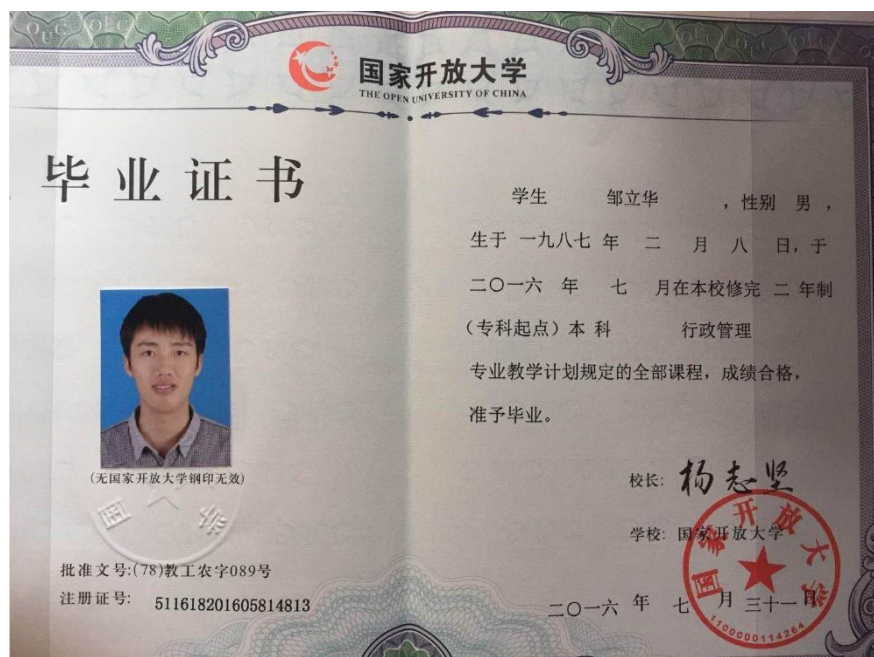 国家开放大学
THE OPEN UNIVERSITY OF CHINA
毕业证书
(无国家开放大学钢印无效)
批准文号:(78)教工农字089号
注册证号: 511618201605814813
学生 邹立华 ,性别 男 ,
生于 一九八七 年 二 月 八 日,于
二〇一六 年 七 月在本校修完 二 年制
(专科起点)本 科 行政管理
专业教学计划规定的全部课程,成绩合格,
准予毕业。
校长: 杨志坚
学校: 国家开放大学
二〇一六 年 七 月 三十一 日
国家开放大学
1100000114264